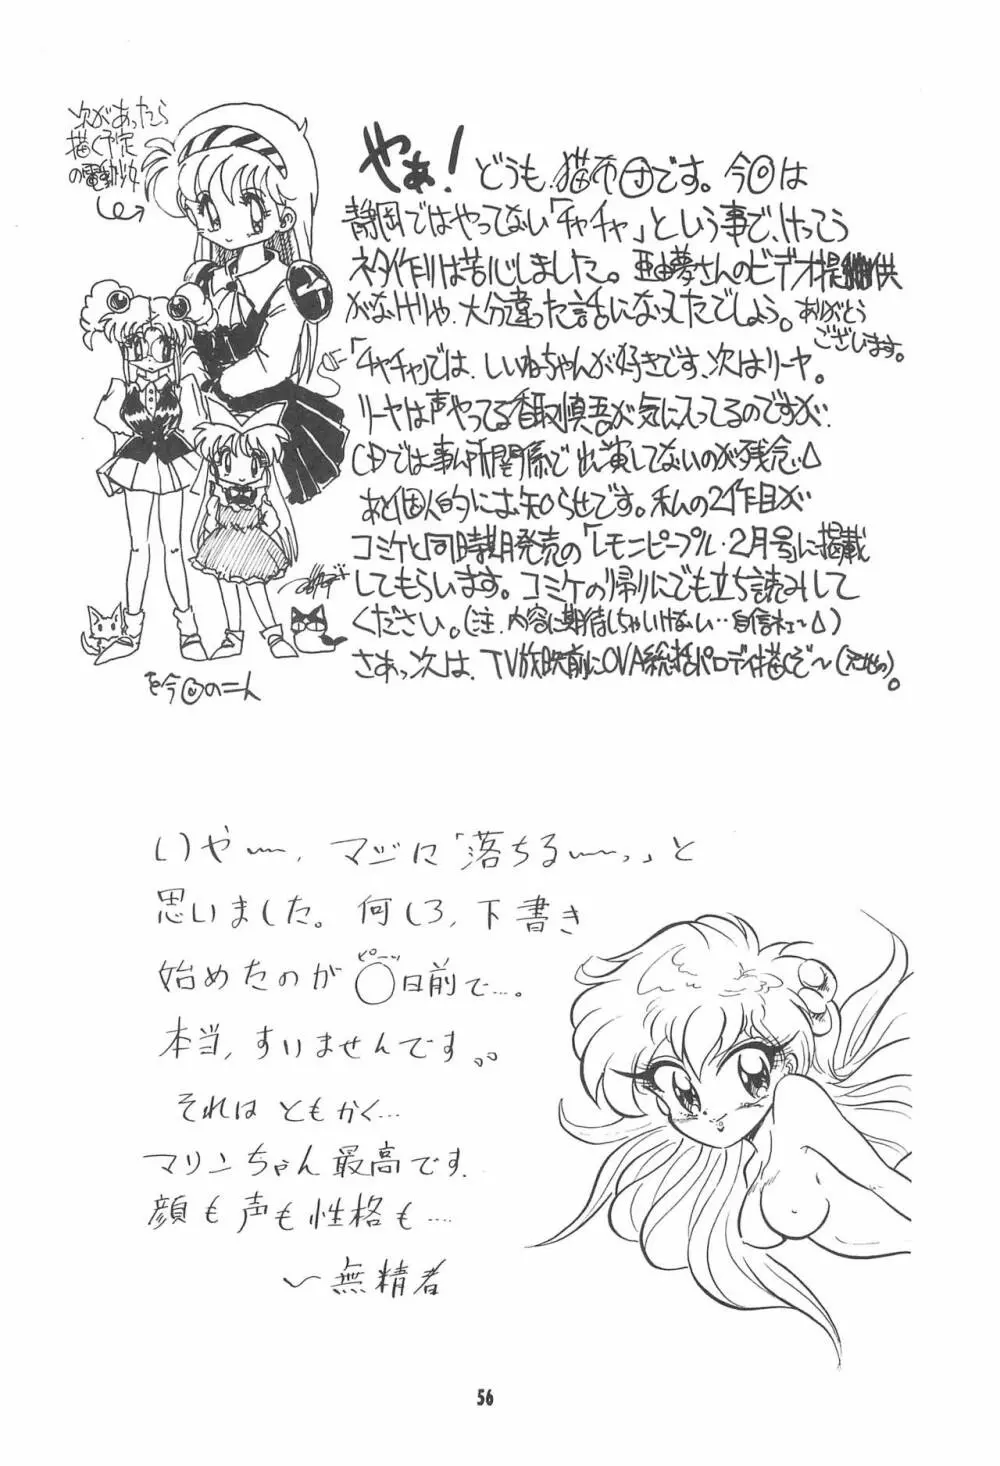 次があったら
描く予定
の電動少女
やぁ！どうも、猫布団です。今回は
静岡ではやってない「チャチャ」という事で、けっこう
ネタ作りは苦心しました。亜由夢さんのビデオ提供
がなけりゃ、大分違った話になってたでしょう。ありがとう
ございます。
「チャチャ」では、しいねちゃんが好きです、次はリーヤ。
リーヤは声やってる香取慎吾が気に入ってるのですが、
CDでは事ム所関係で出演してないのが残念。
あと個人的にお知らせです。私の2作目が
コミケと同時期発売の「レモンピープル・2月号」に掲載
してもらいます。コミケの帰りにでも立ち読みして
ください。(注、内容に期待しちゃいけない‥自信ネェ〜)
さぁっ、次は、TV放映前にOVA総括パロディ描くぞ〜
を今回の二人
いやー、マジに「落ちるーっ」と
思いました。何しろ、下書き
始めたのが〇日前で…。
ピーッ
本当、すいませんです。。
それは ともかく…
マリンちゃん最高です。
顔も声も性格も…
〜無精者
56